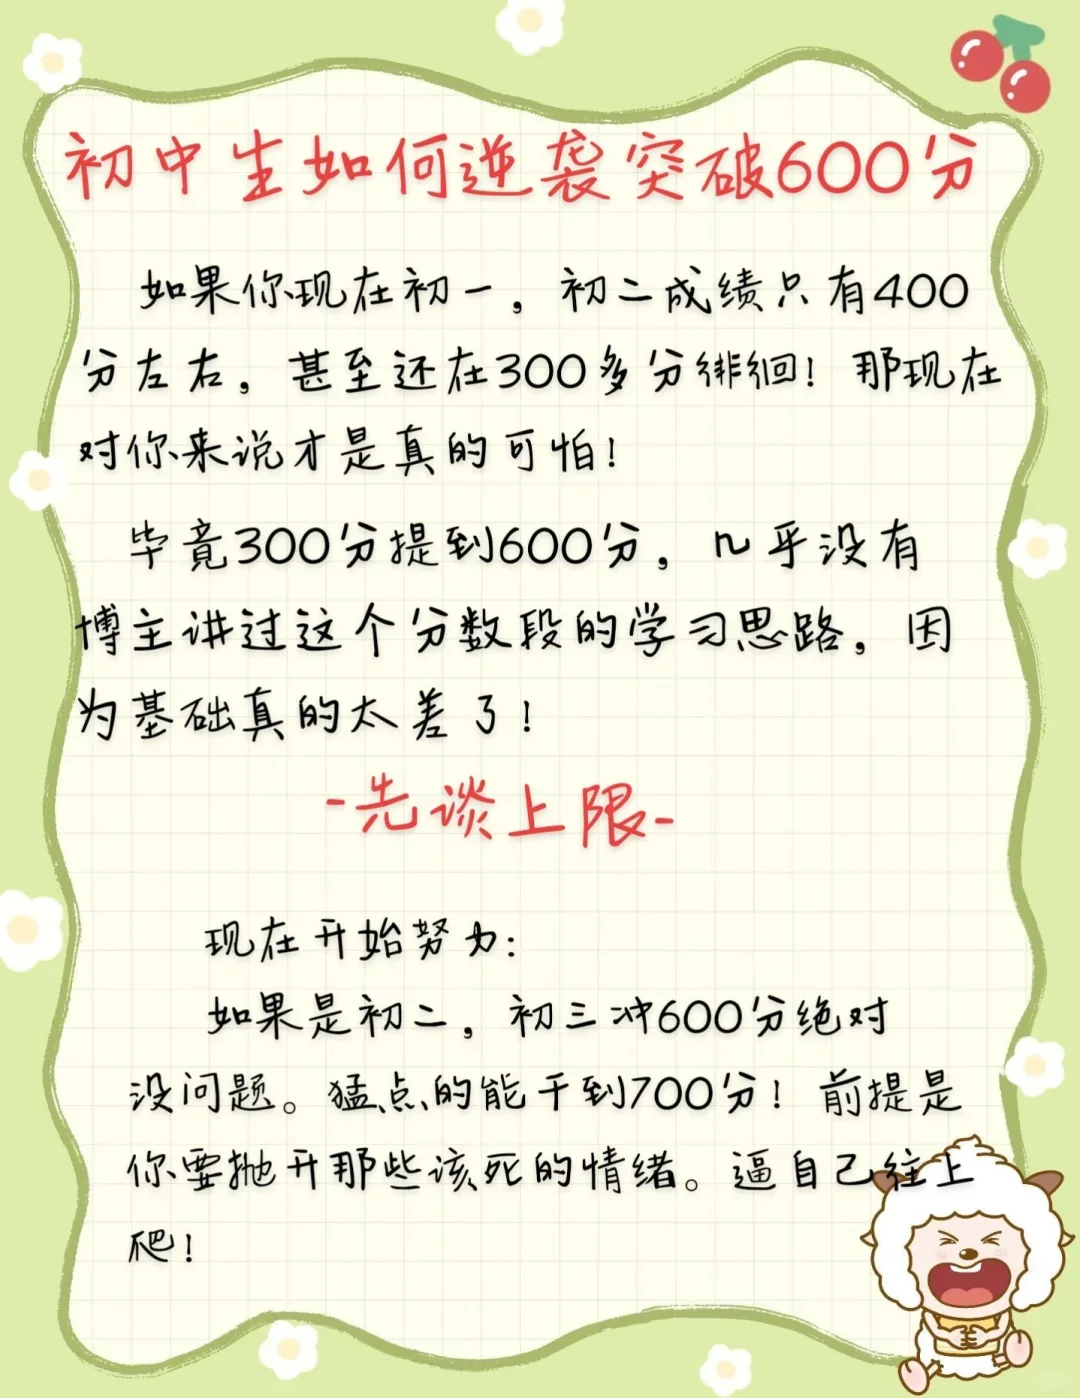 初中生如何逆袭突破600分
如果你现在初一，初二成绩只有400
分左右，甚至还在300多分徘徊！那现在
对你来说才是真的可怕！
毕竟300分提到600分，几乎没有
博主讲过这个分数段的学习思路，因
为基础真的太差了！
-先谈上限-
现在开始努力：
如果是初二，初三冲600分绝对
没问题。猛点的能干到700分！前提是
你要抛开那些该死的情绪。逼自己往上
爬！